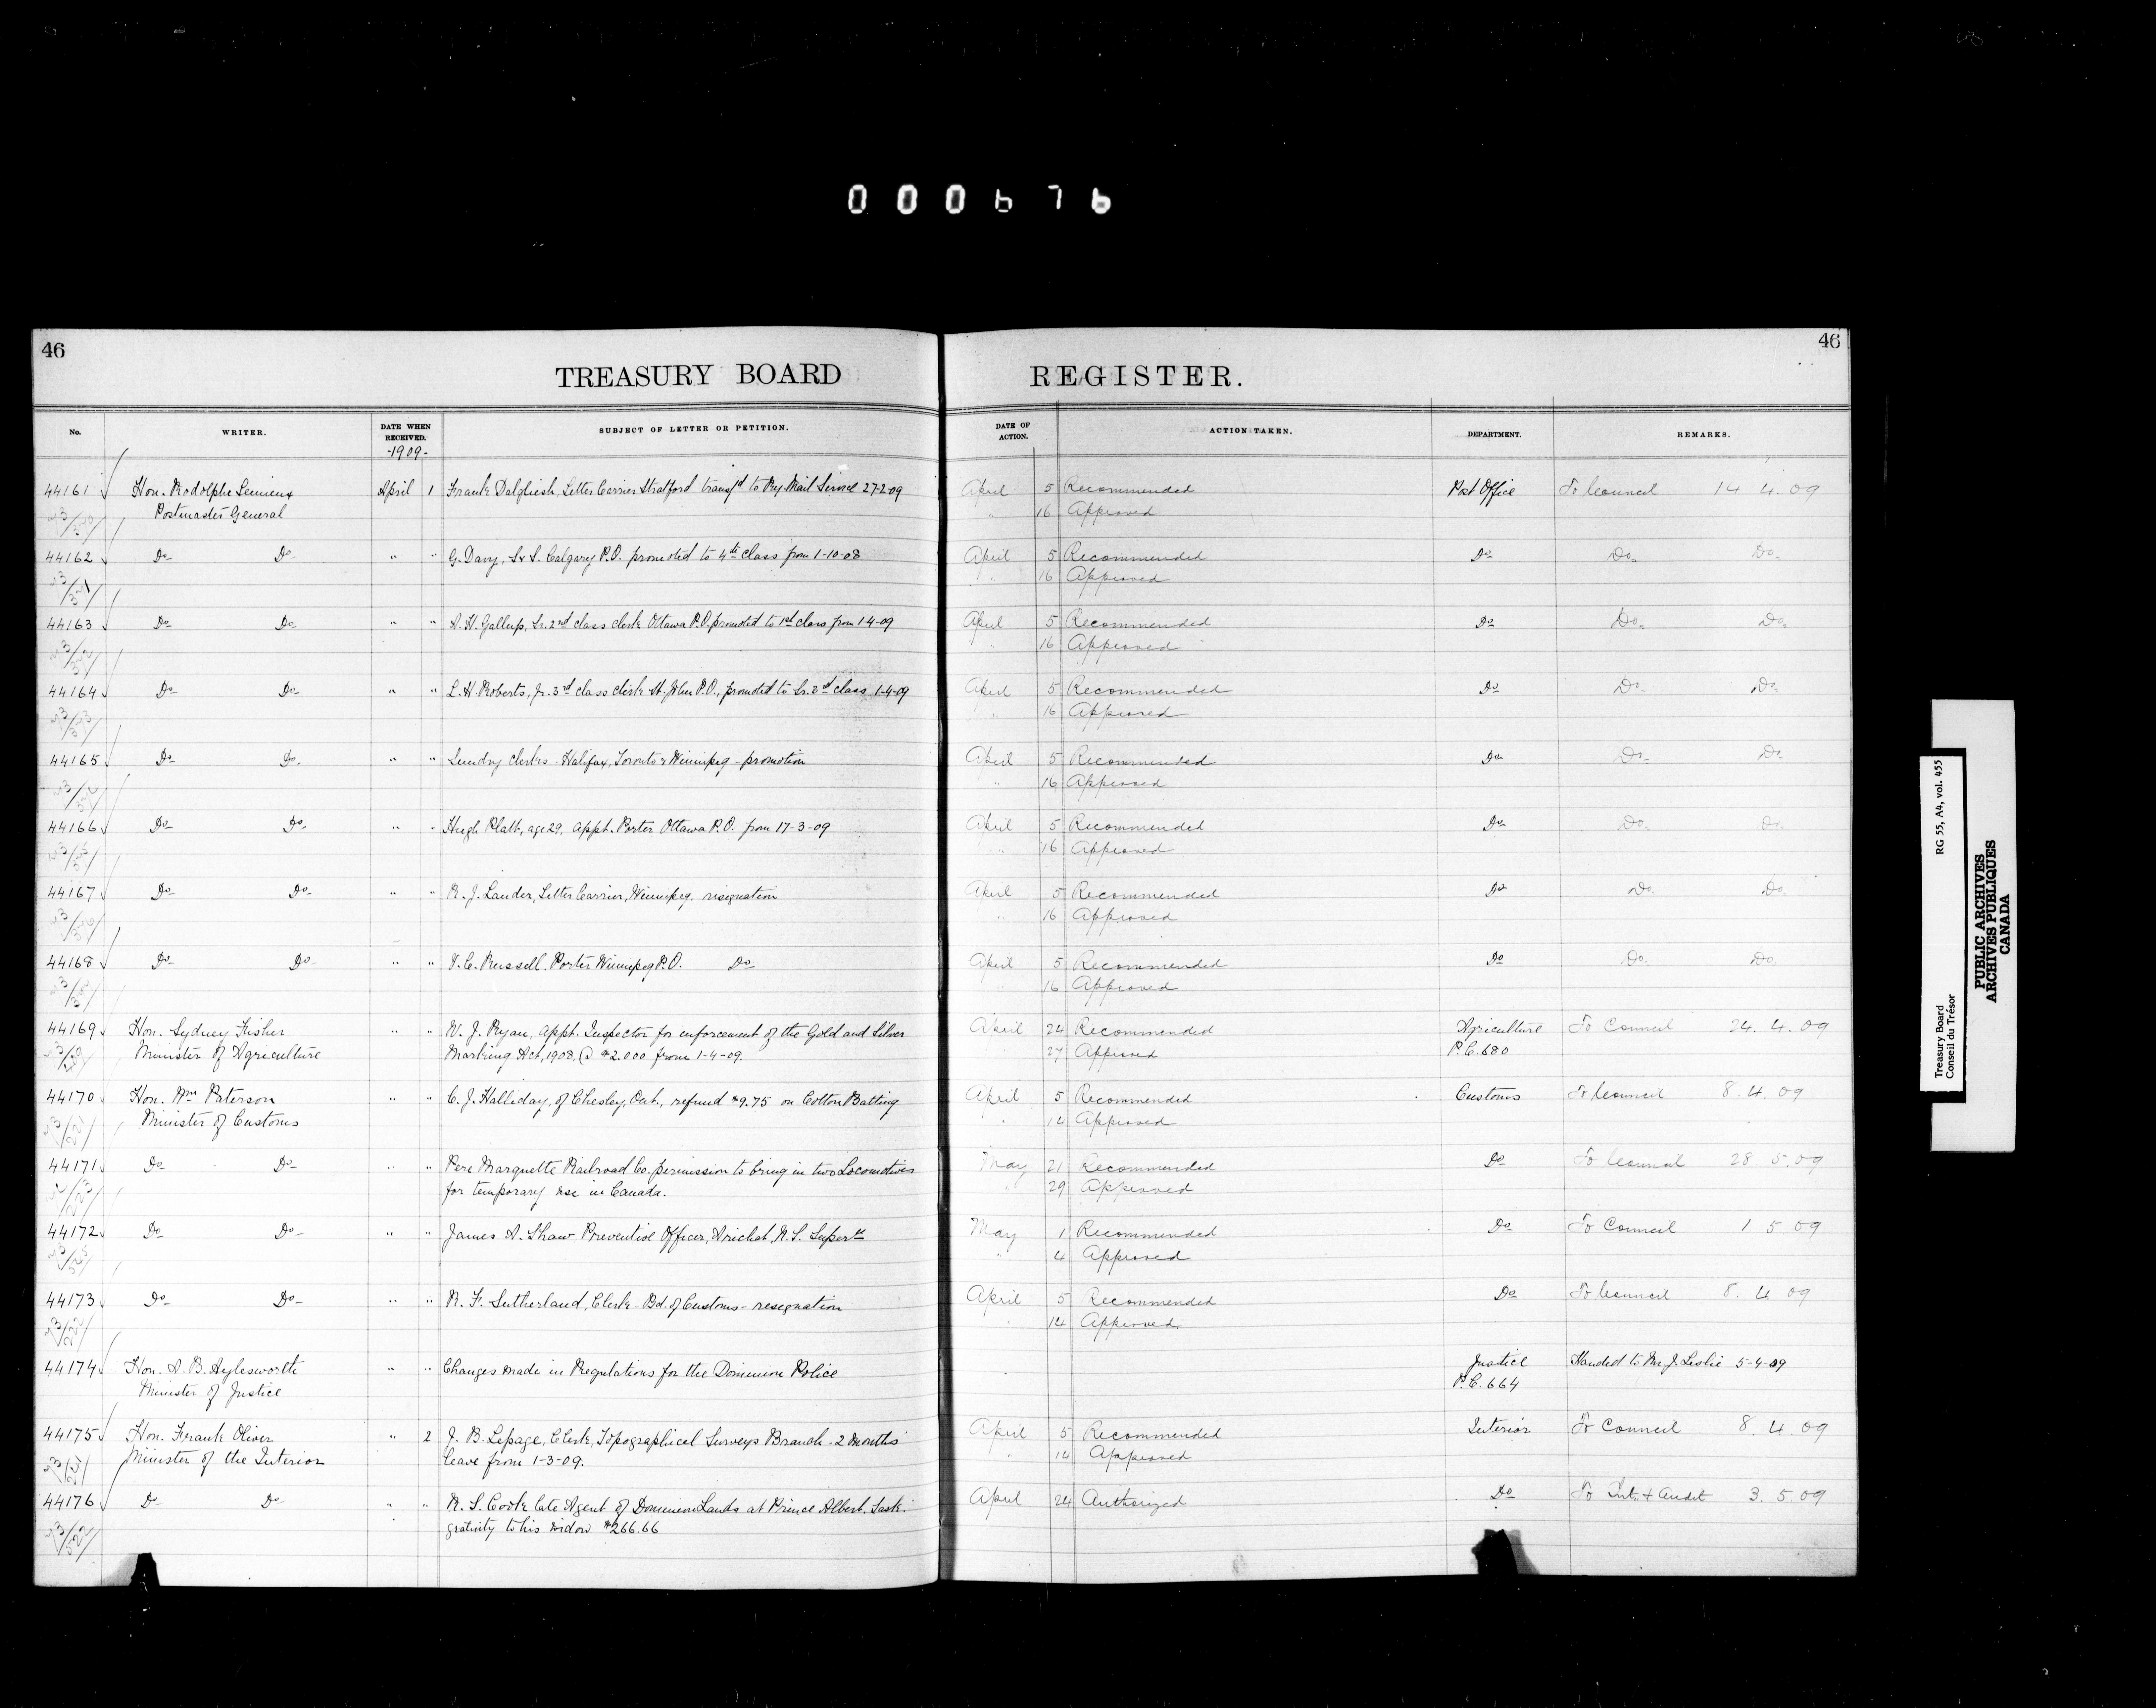 000676
46
46
TREASURY BOARD REGISTER.
No. WRITER. DATE WHEN RECEIVED. SUBJECT OF LETTER OR PETITION. DATE OF ACTION. ACTION TAKEN. DEPARTMENT. REMARKS.
-1909-
44161 Hon. Rodolphe Lemieux April 1 Frank Dalgliesh, Letter Carrier Stratford transfd to Ry Mail Service 27-2-09 April 5 Recommended Post Office To Council 14 4. 09
Postmaster General " 16 Approved
44162 Do- Do- " " G. Davy, S & S. Calgary P.O. promoted to 4th class from 1-10-08 April 5 Recommended Do Do- Do-
" 16 Approved
44163 Do- Do- " " A. H. Gallup, Sr. 2nd class clerk Ottawa P.O. promoted to 1st class from 1-4-09 April 5 Recommended Do Do- Do-
" 16 Approved
44164 Do- Do- " " L. H. Roberts, Jr. 3rd class clerk St. John P.O., promoted to Sr. 3rd class 1-4-09 April 5 Recommended Do Do- Do-
" 16 Approved
44165 Do- Do- " " Sundry clerks - Halifax, Toronto & Winnipeg - promotion April 5 Recommended Do- Do- Do-
" 16 Approved
44166 Do- Do- " " Hugh Platt, age 29, appt. Porter Ottawa P.O. from 17-3-09 April 5 Recommended Do- Do- Do-
" 16 Approved
44167 Do- Do- " " R. J. Lauder, Letter Carrier, Winnipeg, resignation April 5 Recommended Do Do- Do-
" 16 Approved
44168 Do- Do- " " C. Russell, Porter Winnipeg P.O. Do- April 5 Recommended Do Do- Do
" 16 Approved
44169 Hon. Sydney Fisher " " W. J. Ryan, appt. Inspector for enforcement of the Gold and Silver April 24 Recommended Agriculture To Council 24. 4. 09
Minister of Agriculture Marking Act, 1908, @ $2.000 from 1-4-09. 27 Approved P.C. 680
44170 Hon. Wm Paterson " " C. J. Halliday, of Chesley, Ont., refund $9.75 on Cotton Batting April 5 Recommended Customs To Council 8. 4. 09
Minister of Customs " 14 Approved
44171 Do- Do- " " Pere Marquette Railroad Co. permission to bring in two Locomotives May 21 Recommended Do To Council 28. 5. 09
for temporary use in Canada. " 29 Approved
44172 Do- Do- " " James A. Shaw Preventive Officer, Arichat, N.S. Ququa May 1 Recommended Do To Council 1 5. 09
" 4 Approved
44173 Do- Do- " " R. F. Sutherland, Clerk - Bd. of Customs - resignation April 5 Recommended Do To Council 8. 4 09
" 14 Approved
44174 Hon. A. B. Aylesworth " " Changes made in Regulations for the Dominion Police Justice Handed to Mr. J. Leslie 5-4-09
Minister of Justice P.C. 664
44175 Hon. Frank Oliver " 2 J. B. Lepage, Clerk, Topographical Surveys Branch - 2 months' April 5 Recommended Interior To Council 8. 4. 09
Minister of the Interior leave from 1-3-09. " 14 Approved
44176 Do- Do- " " R. S. Cook late Agent of Dominion Lands at Prince Albert, Sask. April 24 Authorized Do To Int. + Audit 3. 5. 09
gratuity to his widow $266.66
Treasury Board RG 55, A4, vol. 455
Conseil du Trésor
PUBLIC ARCHIVES
ARCHIVES PUBLIQUES
CANADA